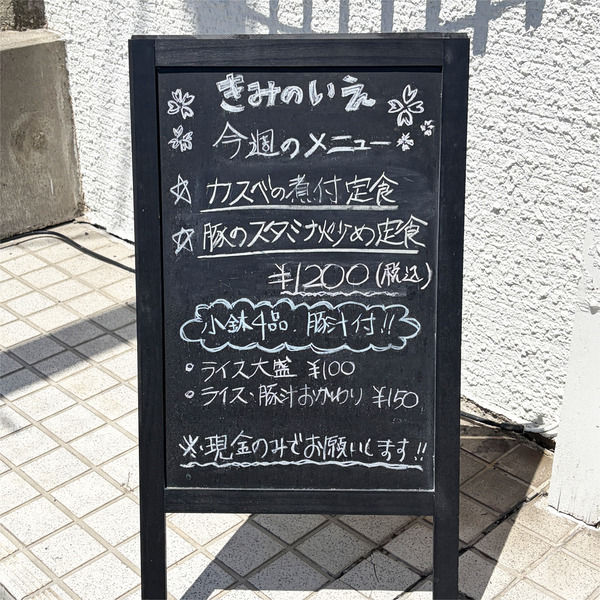 きみのいえ
今週のメニュー
☆ カスベの煮付定食
☆ 豚のスタミナ炒め定食
¥1200(税込)
小鉢4品、豚汁付!!
・ライス大盛 ¥100
・ライス・豚汁おかわり ¥150
※現金のみでお願いします!!